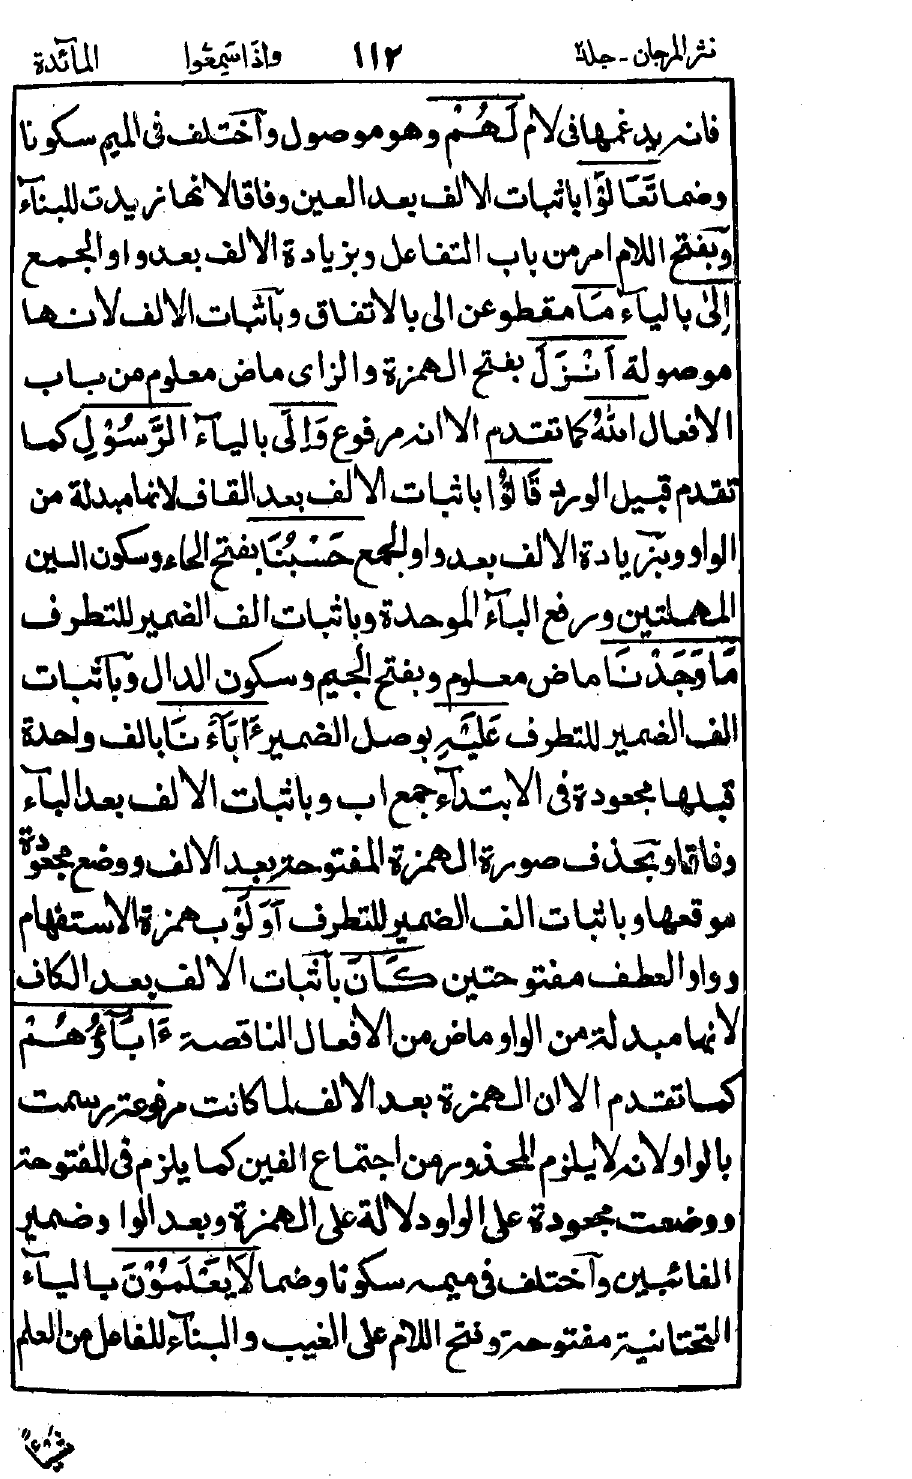 نثر المرجان - جلد ٢ ١١٢ واذا سمعوا المآئدة
فانه يدغمها فى لام لَهُمْ وهو موصول وآختلف فى الميم سكونا
وضما تَعَالَوْا باثبات الالف بعد العين وفاقا لانها زيدت للبنآء
وبفتح اللام امر من باب التفاعل وبزيادة الالف بعد واو الجمع
اِلىٰ بالياء مَا مقطوع عن الى بالاتفاق وبآثبات الالف لانها
موصولة اَنْزَلَ بفتح الهمزة والزاى ماض معلوم من باب
الافعال اللهُ كما تقدم الا انه مرفوع وَاِلَى باليآء الرَّسُوْلِ كما
تقدم قبيل الورد قَالُوْا باثبات الالف بعد القاف لانها مبدلة من
الواو وبزيادة الالف بعد واو الجمع حَسْبُنَا بفتح الحاء وسكون السين
المهملتين ورفع البآء الموحدة وباثبات الف الضمير للتطرف
مَا وَجَدْنَا ماض معلوم وبفتح الجيم وسكون الدال وبآثبات
الف الضمير للتطرف عَلَيْهِ بوصل الضمير ءَابَآءَنَا بالف واحدة
قبلها مجعودة فى الابتدآء جمع اب وباثبات الالف بعد البآء
وفاقا وبحذف صورة الهمزة المفتوحة بعد الالف ووضع مجعودة
موقعها وباثبات الف الضمير للتطرف اَوَلَوْ بهمزة الاستفهام
وواو العطف مفتوحتين كَانَ بآثبات الالف بعد الكاف
لانها مبدلة من الواو ماض من الافعال الناقصة ءَابَآؤُهُمْ
كما تقدم الا ان الهمزة بعد الالف لما كانت مرفوعة رسمت
بالواو لانه لا يلزم المحذور من اجتماع الفين كما يلزم فى المفتوحة
ووضعت مجعودة على الواو دلالة على الهمزة وبعد الوا وضمير
الغائبين وآختلف فى ميمه سكونا وضما لَا يَعْلَمُوْنَ باليآء
التحتانية مفتوحة وفتح اللام على الغيب والبنآء للفاعل من العلم
شيئا